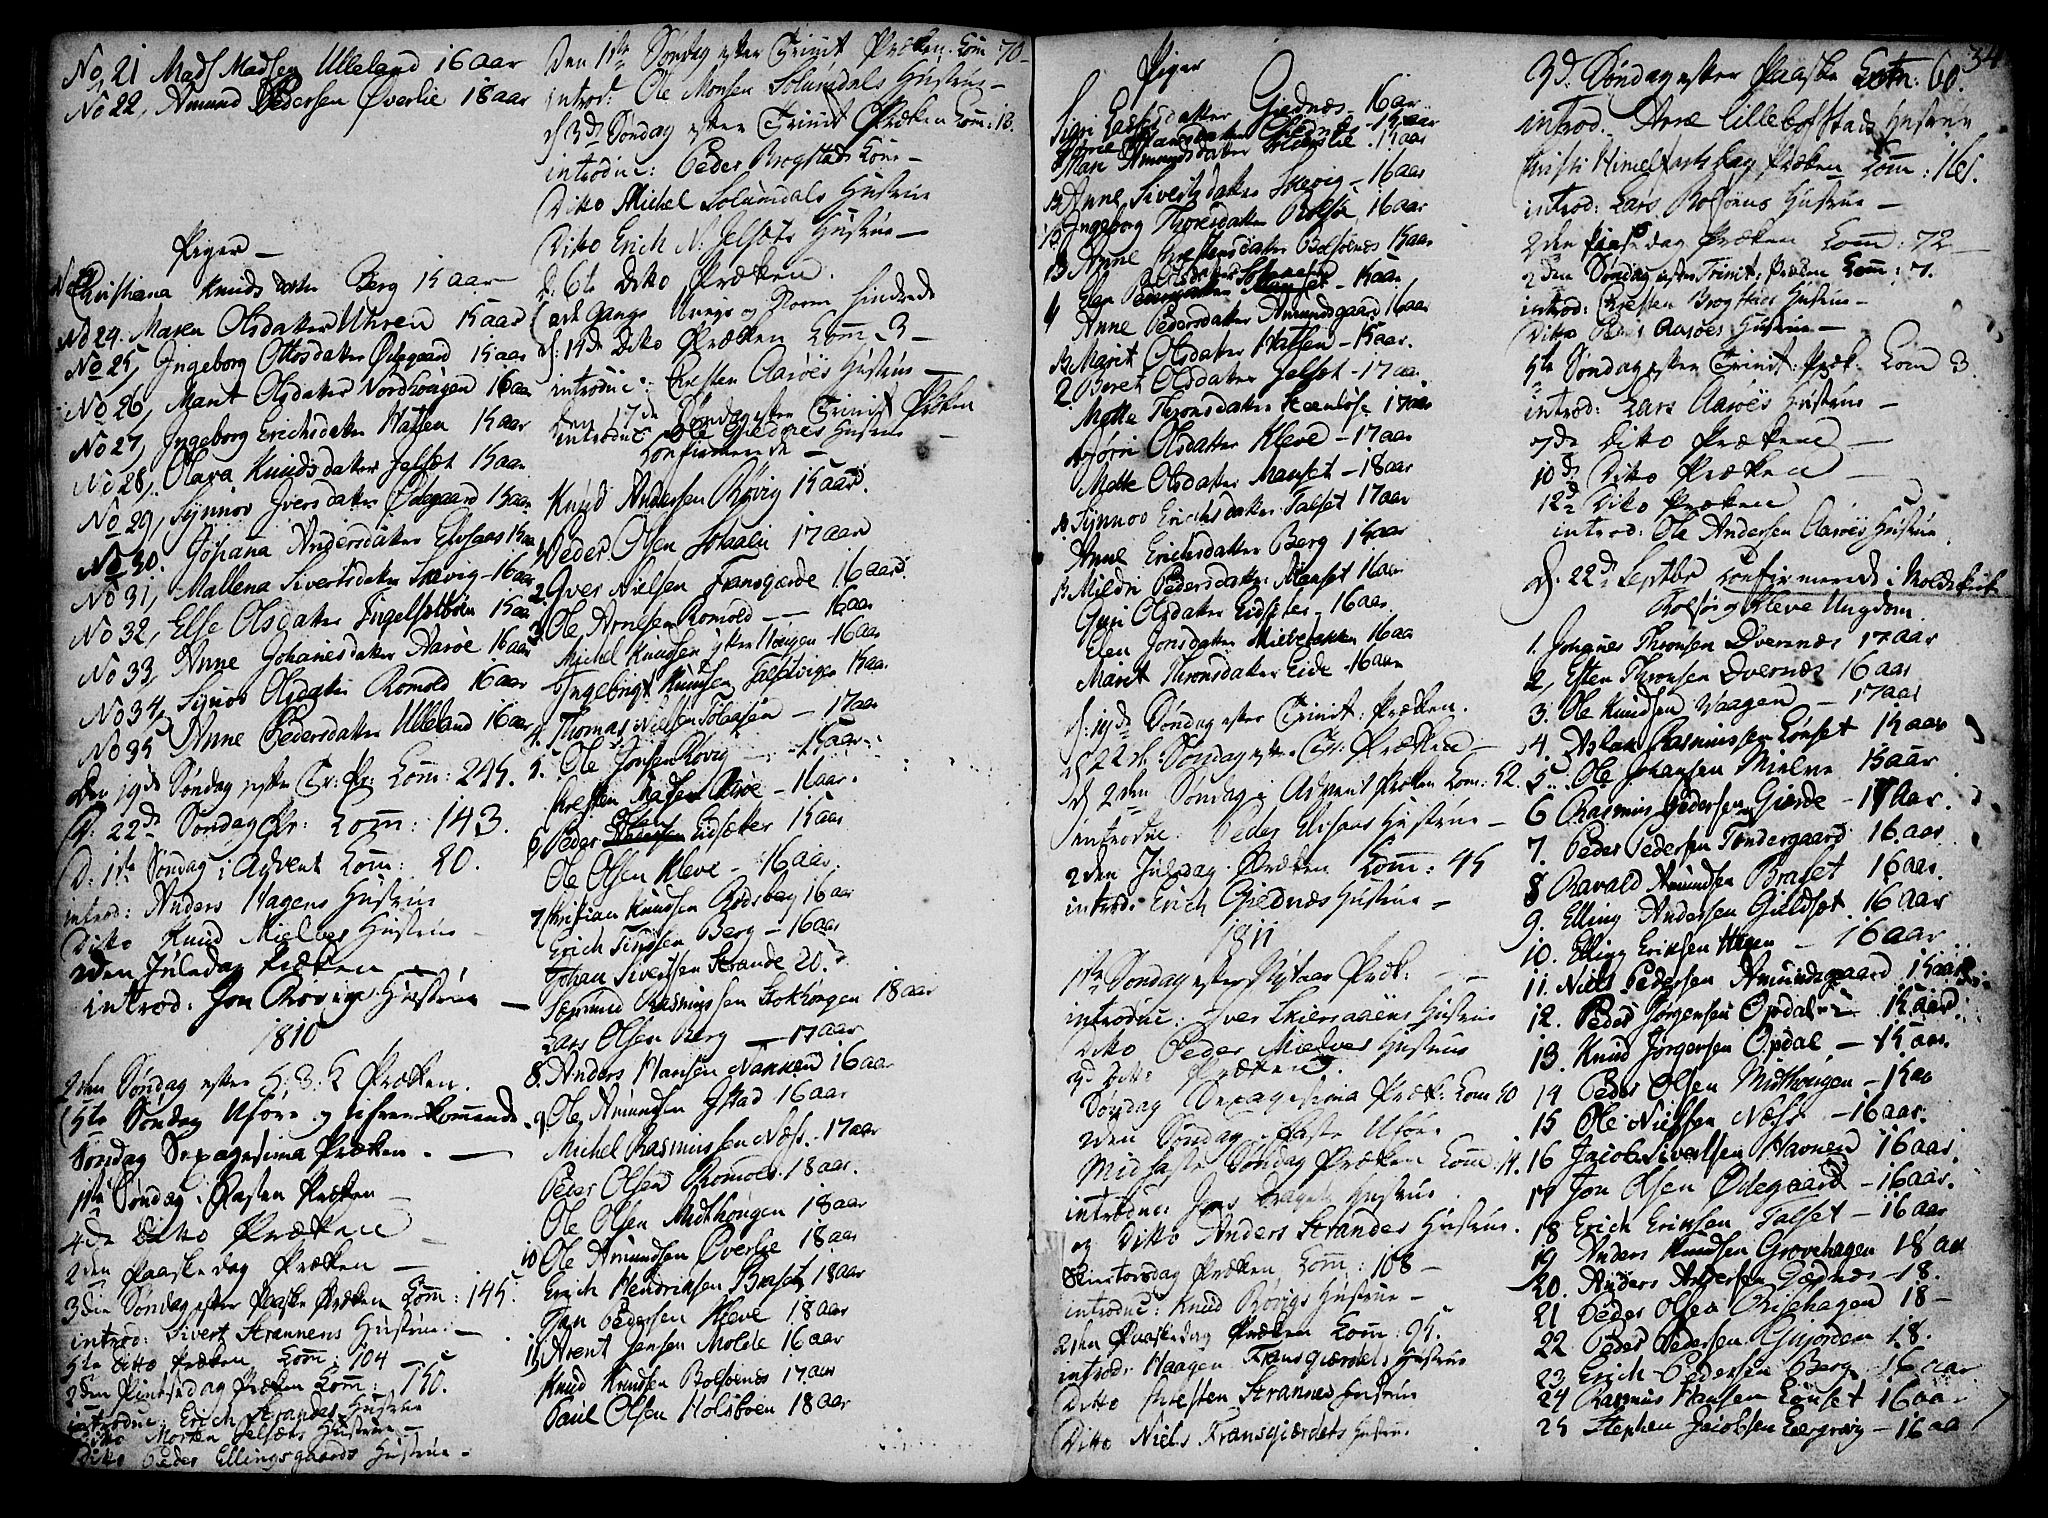 No 21 Mads Madsen Ulleland 16 aar
No 22, Amund Pedersen Øverlie 18 aar
Piger –
Christiana Knudsdatter Berg 15 aar
No 24. Maren Olsdatter Uhren 15 aar
No 25, Ingeborg Ottosdatter Ødegaard 15 aar
No 26, Marit Olsdatter Nordhougen 16 aar
No 27, Ingeborg Erichsdatter Hatlen 15 aar
No 28, Olava Knudsdatter Jelset 15 aar
No 29, Synnov Iversdatter Ødegaard 15 aar
No 30. Johana Andersdatter Elvsaas 15 aar
No 31, Mallena Sivertsdatter Skevig – 16 aar
No 32, Else Olsdatter 15 aar
No 33, Anne Johanesdatter Aarøe 16 aar
No 34, Synov Olsdatter Romold 16 aar
No 35 Anne Pedersdatter Ulleland 16 aar
Den 19de Søndag efter Tr: Pr: Com: 245.
D: 22de Søndag Pr: Com: 143.
D: 1ste Søndag i Advent Com: 20.
introd: Anders Hagens Hustrue
Ditto Knud Mielves Hustrue –
2den Juledag Præken –
introd: Jon Røvigs Hustrue –
1810
2den Søndag efter H: 3: K Præken.
5te Søndag Uføre
Søndag Sexagesima Præken. –
1ste Søndag i Fasten Præken –
4de Ditto Præken –
2den Paaskedag Præken –
3die Søndag efter Paaske Præken Com: 145.
introd: Sivert Strannens Hustrue –
5te Ditto Præken Com: 104
2den Pintsedag Præken Com: 150.
introduc: Erich Strandes Hustrue
Ditto Morten Jelsets Hustrue –
Ditto Peder Ellingsgaards Hustrue –
Den 1ste Søndag efter Trinit Præken. Com 70 –
introd: Ole Monsen Solumdals Hustrue –
d 3de Søndag efter Trinit Præken Com: 13.
introduc: Peder Brogstads Kone –
Ditto Michel Solumdals Hustrue
Ditto Erich N: Jelsets Hustrue –
d: 6te Ditto Præken.
Storm hindrede
d: 15de Ditto Præken Com 3 –
introduc: Chresten Aarøes Hustrue –
Den 17de Søndag efter Trinit Præken
introduc Ole Giednes Hustrue –
Confirmerede –
Knud Andersen Røvig 15 aar.
1. Peder Olsen 17 aar
2 Iver Nielsen Fransgierde 16 aar.
3. Ole Arnesen Romold – 16 aar
Michel Knudsen yster Hougen – 16 aar
Ingebrigt Knudsen Talsetvigen 15 aar
4. Thomas Nielsen – 17 aar
5. Ole Jonsen Røvig – 15 aar
Chresten Madsen Aarøe – 16 aar.
6 Peder Olsen Eidsæter 15 aar
Ole Olsen Kleve – 16 aar.
7 Christian Knudsen Rødsberg 16 aar
Erich Knudsen Berg – 16 aar
Johan Sivertsen Strande 20.
Rasmussen 18 aar
Lars Olsen Berg – 17 aar
8. Anders Hansen Nakken 16 aar
9 Ole Amundsen Istad 16 aar
Michel Rasmussen Næss – 17 aar
Peder Olsen Romold – 18 aar.
Ole Olsen Midthougen 18 aar
10 Ole Amundsen Øverlie 18 aar
Erich Hendriksen Braset 18 aar
Jon Pedersen Kleve 18 aar
11 Arent Jensen Molde 16 aar
Knud Knudsen Bolsønes 17 aar
Paul Olsen Holsbøen 18 aar
34
Piger
Siri Ladsdatter Giednæs – 16 aar
Marie Hansdatter Giednæs – 15 aar
Mari Amundsdatter 15 aar
Anne Sivertsdatter Skevig – 16 aar
Ingeborg Thoresdatter Rolsøe 16 aar
Anne Christensdatter Bolsøenæs 15 aar
Olsdatter
Elen – 15 aar
4 Anne Pedersdatter Amundsgaard 16 aar
Marit Olsdatter Hatlen – 15 aar.
2 Beret Olsdatter Jelset – 17 aar
Mette Thronsdatter Steenløse 17 aar
Giørri Olsdatter Kleve – 17 aar
Mette Olsdatter Manset – 18 aar
Synnov Erichsdatter Talset 17 aar
Anne Erichsdatter Berg 15 aar
Mildri Pedersdatter Manset 16 aar
Guri Olsdatter Eidseter – 16 aar
Elen Jonsdatter Mielvebakken 16 aar
Marit Thronsdatter Eide – 16 aar
d: 19de Søndag efter Trinit: Præken.
d 22de Søndag efter Tr: Præken –
d 2den Søndag i Advent Præken Com. 52.
introduc: Peder Elisars Hustrue –
2den Juledag Præken Com: 45
introd: Erich Giednæs Hustrue –
1811
1ste Søndag efter Nytaar Præk: –
introduc: Iver Skiersaaens Hustrue
Ditto Peder Mielves Hustrue
3de Ditto Præken.
Søndag Sexagesima Præk: Com 50
2den Søndag i Faste Uføre
Midfaste Søndag Præken Com: 4.
introduc: Jens Hustrue
og Ditto Anders Strandes Hustrue.
Skiertorsdag Præken Com: 108 –
introduc: Knud Røvigs Hustrue –
2den Paaskedag Præken Com: 95.
introd: Haagen Fransgiærdets Hustrue
Ditto Christen Strannes Hustrue
Ditto Niels Fransgiærdets Hustrue
3de Søndag efter Paaske Com: 60.
introd. Arne Lillebostads Hustrue
Christi Himelfartsdag Præken Com: 165.
introd: Lars Bolsøens Hustrue –
2den pintsedag Præken Com: 72
2den Søndag efter Trinit: Præken Com: 7.
introd: Christen Brogstads Hustrue –
Ditto Aarøes Hustrue –
5te Søndag efter Trinit: Præk: Com 3
introd: Lars Aarøes Hustrue –
7de Ditto Præken –
10de Ditto Præken –
12te Ditto Præken
introd: Ole Andersen Aarøes Hustrue.
d: 22de Septbr Confirmerede i Molde Kirke
Bolsø og Kleve Ungdom.
1. Johanes Thronsen Dvernæs 17 aar
2, Esten Thronsen Dvernæs 16 aar
3. Ole Knudsen Vaagen – 17 aar
4. Aslak Rasmussen Lonset 15 aar
5. Ole Johansen Mielve 15 aar
6 Rasmus Pedersen Gierde – 17 aar.
7. Peder Pedersen Tøndergaard 16 aar
8 Ravald Amundsen Braset 16 aar.
9. Elling Andersen Guldset 16 aar
10. Elling Eriksen Hagen – 16 aar
11. Niels Pedersen Amundsgaard 15 aar
12. Peder Jørgensen Opdal – 15 aar.
13. Knud Jørgensen Opdal – 15 aar.
14 Peder Olsen Midthougen – 15 aar
15 Ole Nielsen Næss – 16 aar.
16 Jacob Sivertsen Havnen 16 aar.
17 Jon Olsen Ødegaard – 16 aar.
18 Erich Eriksen Talset – 16 aar
19 Anders Knudsen Grovehagen 18 aar
20. Anders Andersen Giednæs – 18.
21 Peder Olsen Risehagen 18 –
22 Peder Pedersen Gujorden 18.
23 Erich Pedersen Berg 16 aar
24 Rasmus Hansen Lønset 16 aar
25 Stephen Jacobsen – 16 aar